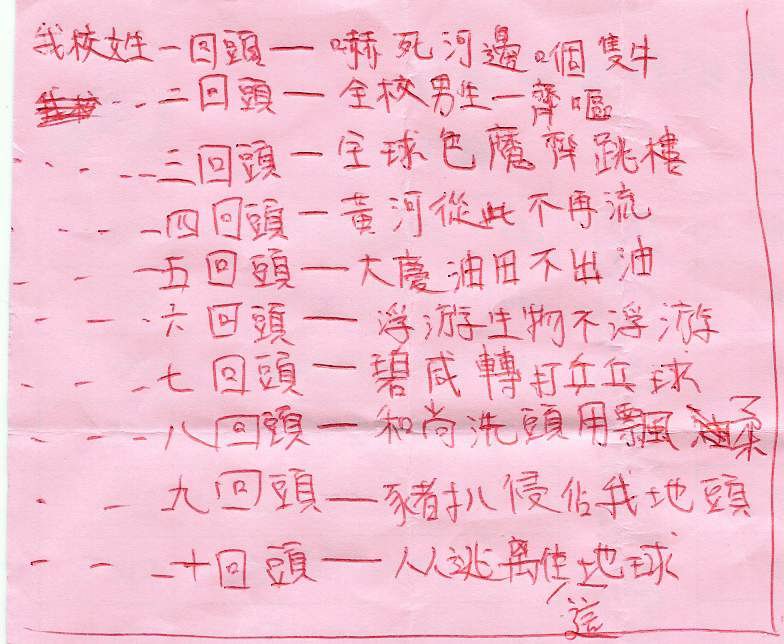 我校女姓一回頭—嚇死河邊嗰隻牛
- - 二回頭—全校男生一齊嘔
- - - - 三回頭—全球色魔齊跳樓
- - - - 四回頭—黃河從此不再流
- - - 五回頭—大慶油田不出油
- - - 六回頭—浮游生物不浮游
- - - - 七回頭—碧咸轉打乒乓球
- - - - 八回頭—和尚洗頭用飄柔
- - - 九回頭—豬扒侵佔我地頭
- - - - 十回頭—人人逃離這地球